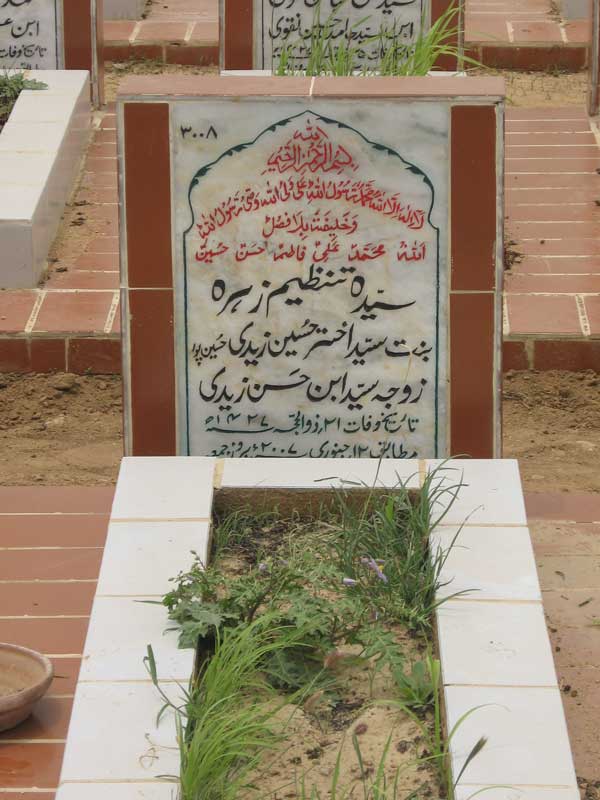 سید حامد حسین نقوی
۳۰۰۸
اللہ
بسم الله الرحمن الرحيم
لا اله الا الله محمد رسول الله علی ولی الله وصی رسول الله
وخلیفتہ بلا فصل
اللہ محمد علی فاطمہ حسن حسین
سیدہ تنظیم زہرہ
بنت سید اختر حسین زیدی حسین پور
زوجہ سید ابن حسن زیدی
تاریخ وفات ۲۱؍ذوالحجہ ۱۴۲۷ھ
مطابق ۱۲؍جنوری ۲۰۰۷ء بروز جمعہ